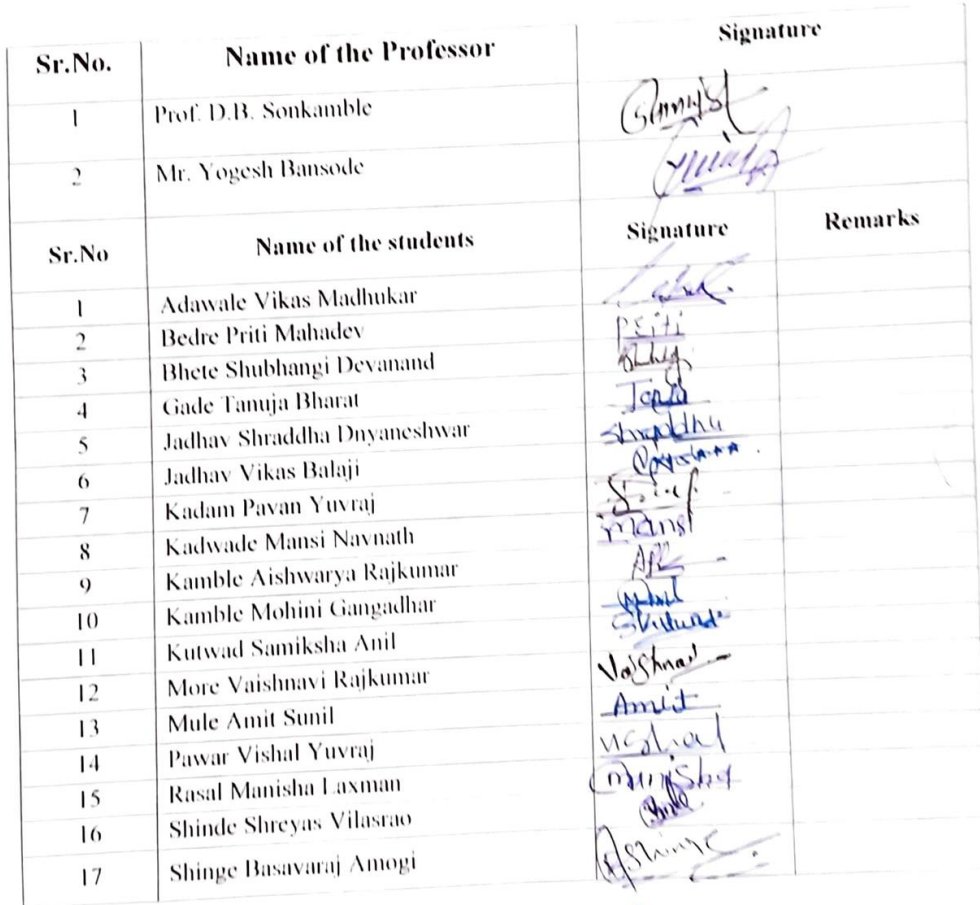 Sr.No. Name of the Professor Signature
1 Prof. D.B. Sonkamble
2 Mr. Yogesh Bansode
Sr.No Name of the students Signature Remarks
1 Adawale Vikas Madhukar
2 Bedre Priti Mahadev Priti
3 Bhete Shubhangi Devanand
4 Gade Tanuja Bharat
5 Jadhav Shraddha Dnyaneshwar Shraddha
6 Jadhav Vikas Balaji
7 Kadam Pavan Yuvraj
8 Kadwade Mansi Navnath Mansi
9 Kamble Aishwarya Rajkumar
10 Kamble Mohini Gangadhar
11 Kutwad Samiksha Anil
12 More Vaishnavi Rajkumar
13 Mule Amit Sunil Amit
14 Pawar Vishal Yuvraj
15 Rasal Manisha Laxman Manisha
16 Shinde Shreyas Vilasrao
17 Shinge Basavaraj Amogi